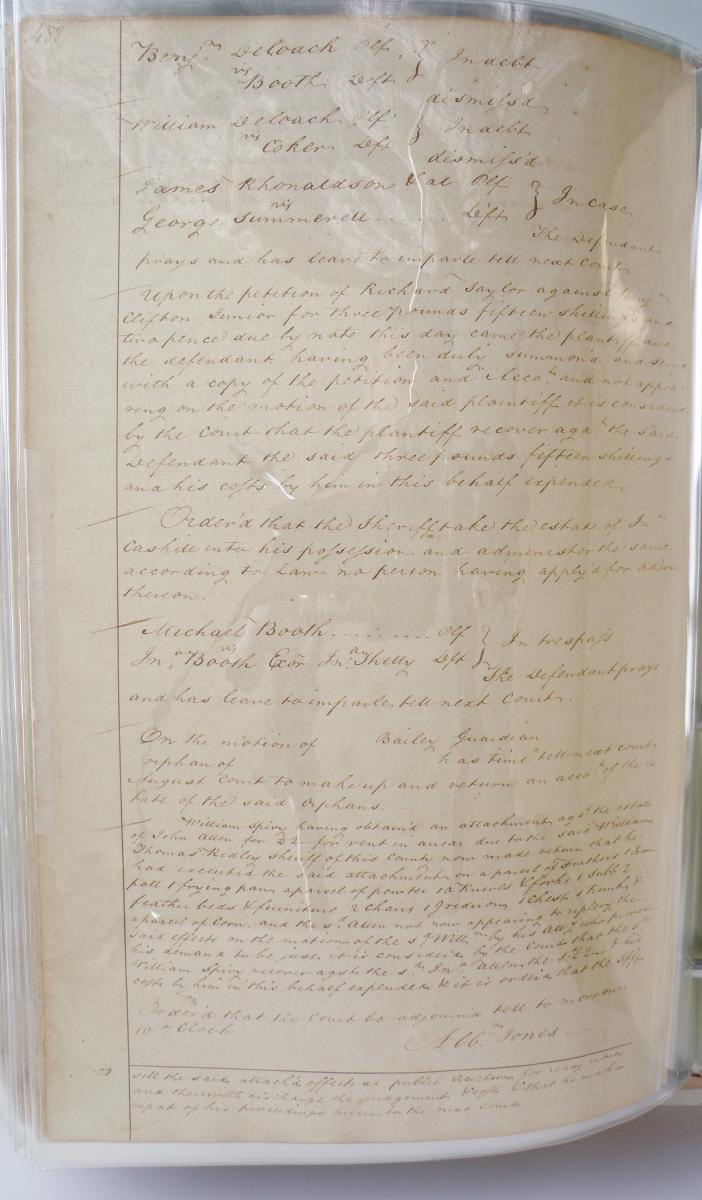 488
Benj.m Deloach Plf } In debt
vs
Booth Deft
dismiss'd
William Deloach Plf } In debt
vs
Coker Deft
dismiss'd
James Rhonaldson & al Plf } In case
vs
George Summerell ...... Deft
The Defendant
prays and has leave to imparle tell next Court
Upon the petition of Richard Taylor against Benj.m
Clifton Junior for three pounds fifteen shillings and
two pence due by note this day came the plantiff and
the defendant having been duly summon'd and serv'd
with a copy of the petition and Acco.t and not appea
ring on the motion of the said plaintiff it is consider'd
by the Court that the plantiff recover aga.t the said
Defendant the said three pounds fifteen shillings
and his costs by him in this behalf expended.
Order'd that the Sheriff take the estate of Jn.o
Cashill into his possession and administor the same
according to Law no person having apply'd for admon
thereon.
Michael Booth ......... Plf } In trespass
vs
Jn.o Booth Exor Jn.o Shelly Deft
The Defendant prays
and has leave to imparle tell next Court.
On the motion of Bailey Guardian
orphan of has time tell next court
August Court to make up and return an acco.t of the es
tate of the said orphans.
William Spivy having obtain'd an attachment ags.t the estate
of John Allen for £2 for rent in arear due to the said William
Thomas Ridley Sheriff of this County now made return that he
had executed the said attachment on a parcel of Feathers 1 Iron
pott 1 frying pan a parcel of pewter 10 Knives & forks 1 Tubb 2
feather beds & furniture 2 Chairs 1 Gridiron 1 Chest 1 Trunk &
a parcel of Corn. and the s.d Allen not now appearing to replevy the
said effects on the motion of the s.d Will.m by his Att.o who proved
his demand to be just it is consider'd by the Court that the s.d
William Spivy recover agst the s.d Jn.o Allen the s.d £2 & his
costs by him in this behalf expended & it is order'd that the Shff
Order'd that the Court be adjourn'd tell to morrow
10 o Clock
Alb.m Jones
sell the said attach'd effects at public Auction for ready money
and therewith discharge the judgement & costs & that he make
report of his proceedings herein to the next Court